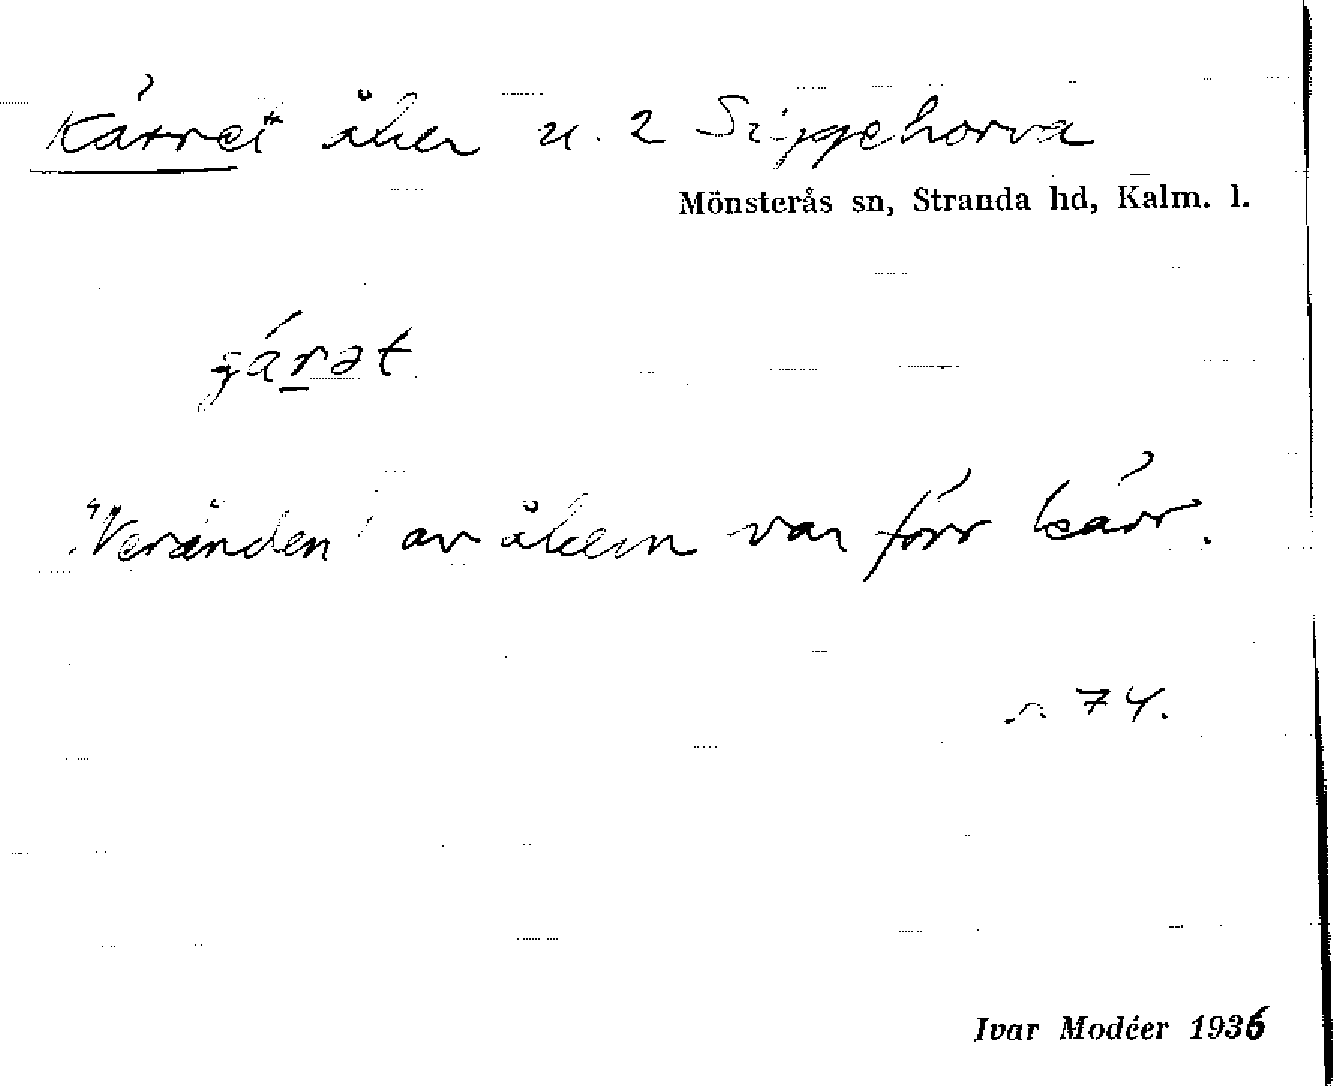 Kärret* åker u. 2 Sippehorva
Mönsterås sn, Stranda hd, Kalm. l.
"Neränden" av åkern var förr kärr.
s. 74.
Ivar Modéer 1936